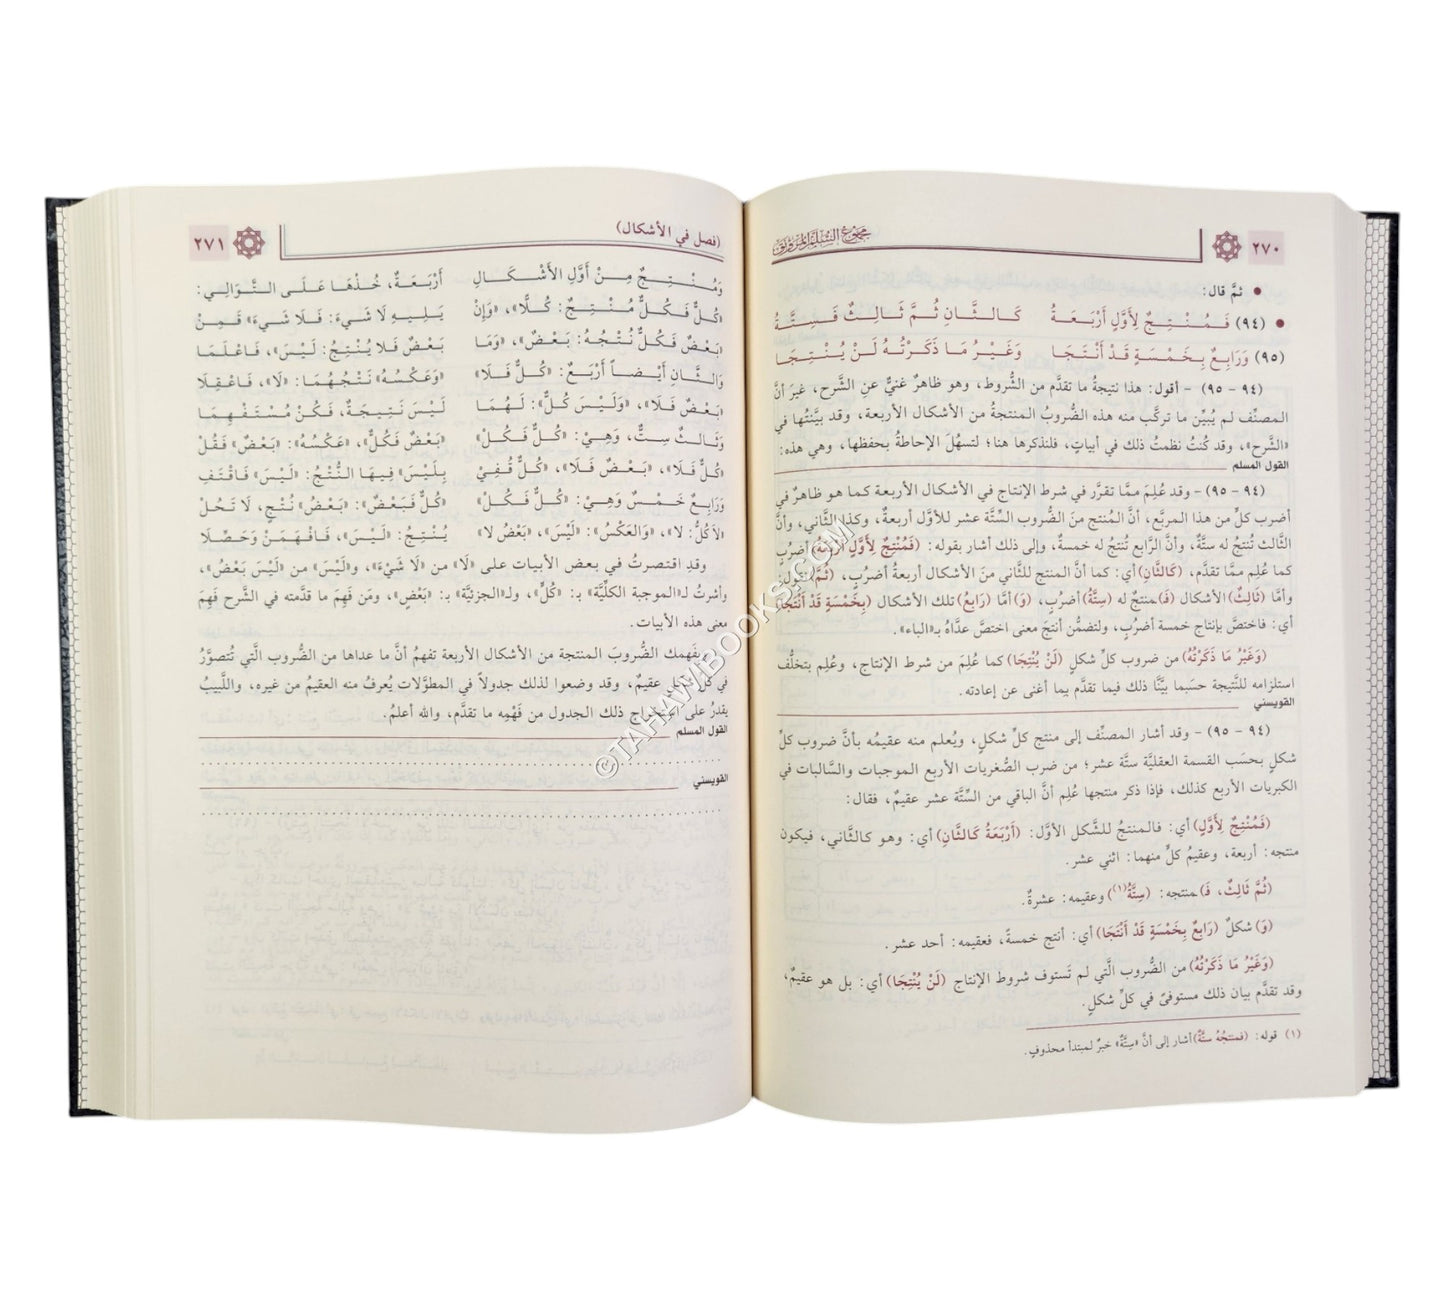 ٢٧٠
مجموع السلم المرونق
• ثمَّ قال:
• (٩٤) فَـمُـنْـتِـجٌ لِأَوَّلٍ أَرْبَـعَـةُ كَـالـثَّـانِ ثُـمَّ ثَـالِـثٌ فَـسِـتَّـةُ
(٩٥) وَرَابِـعٌ بِـخَـمْـسَـةٍ قَـدْ أَنْـتَـجَـا وَغَـيْـرُ مَـا ذَكَـرْتُـهُ لَـنْ يُـنْـتِـجَـا
(٩٤ - ٩٥) - أقول: هذا نتيجةُ ما تقدَّم من الشُّروط، وهو ظاهرٌ غنيٌّ عن الشَّرح، غيرَ أنَّ
المصنِّف لم يُبيِّن ما تركَّب منه هذه الضُّروبُ المنتجةُ من الأشكال الأربعة، وقد بيَّنتُها في
«الشَّرح»، وقد كُنتُ نظمتُ ذلك في أبياتٍ، فلنذكرها هنا؛ لتسهُل الإحاطةُ بحفظها، وهي هذه:
القول المسلم
(٩٤ - ٩٥) - وقد عُلِمَ ممَّا تقرَّر في شرط الإنتاج في الأشكال الأربعة كما هو ظاهرٌ في
أضرب كلٍّ من هذا المربَّع، أنَّ المُنتج منَ الضُّروب السِّتَّة عشر للأوَّل أربعةٌ، وكذا الثَّاني، وأنَّ
الثَّالث تُنتجُ له ستَّةٌ، وأنَّ الرَّابع تُنتجُ له خمسةٌ، وإلى ذلك أشار بقوله: (فَمُنْتِجٌ لِأَوَّلٍ أَرْبَعَةُ) أضرُبٍ
كما عُلِم ممَّا تقدَّم، (كَالثَّانِ) أي: كما أنَّ المنتج للثَّاني منَ الأشكال أربعةُ أضرُبٍ، (ثُمَّ) نقول:
وأمَّا (ثَالِثُ) الأشكال (فَـ)ـمنتجٌ له (سِتَّةُ) أضرُبٍ، (وَ) أمَّا (رَابِعُ) تلك الأشكال (بِخَمْسَةٍ قَدْ أَنْتَجَا)
أي: فاختصَّ بإنتاج خمسة أضرُبٍ، ولتضمُّن أنتجَ معنى اختصَّ عدَّاهُ بـ«الباء».
(وَغَيْرُ مَا ذَكَرْتُهُ) من ضروب كلِّ شكلٍ (لَنْ يُنْتِجَا) كما عُلِمَ من شرط الإنتاج، وعُلِم بتخلُّف
استلزامه للنَّتيجة حَسبما بيَّنَّا ذلك فيما تقدَّم بما أغنى عن إعادته.
القويسني
(٩٤ - ٩٥) - وقد أشار المصنِّف إلى منتج كلِّ شكلٍ، ويُعلم منه عقيمُه بأنَّ ضروب كلِّ
شكلٍ بحسَب القسمة العقليَّة ستَّة عشر؛ من ضرب الصُّغريات الأربع الموجبات والسَّالبات في
الكبريات الأربع كذلك، فإذا ذكر منتجها عُلِم أنَّ الباقي من السِّتَّة عشر عقيمٌ، فقال:
(فَمُنْتِجٌ لِأَوَّلٍ) أي: فالمنتجُ للشَّكل الأوَّل: (أَرْبَعَةُ كَالثَّانِ) أي: وهو كالثَّاني، فيكون
منتجه: أربعة، وعقيمُ كلٍّ منهما: اثني عشر.
(ثُمَّ ثَالِثٌ، فَـ)ـمنتجه: (سِتَّةُ(١)) وعقيمه: عشرةٌ.
(وَ) شكلٌ (رَابِعٌ بِخَمْسَةٍ قَدْ أَنْتَجَا) أي: أنتج خمسةً، فعقيمه: أحد عشر.
(وَغَيْرُ مَا ذَكَرْتُهُ) من الضُّروب الَّتي لم تَستوف شروط الإنتاج (لَنْ يُنْتِجَا) أي: بل هو عقيمٌ،
وقد تقدَّم بيان ذلك مستوفىً في كلِّ شكلٍ.
(١) قوله: (فمنتجُهُ ستَّةٌ) أشار إلى أنَّ «سِتَّةٌ» خبرٌ لمبتدأ محذوفٍ.
(فصل في الأشكال)
٢٧١
وَمُـنْـتِـجٌ مِـنْ أَوَّلِ الأَشْـكَـالِ أَرْبَـعَـةٌ، خُـذْهَـا عَـلَـى الـتَّـوَالِـي:
«كُلٌّ فَـكُـلٌّ مُـنْـتِـجٌ: كُـلًّا»، «وَإِنْ يَـلِـيهِ لَا شَـيْءَ: فَـلَا شَـيْءَ» قَـمِـنْ
«بَـعْـضٌ فَـكُلٌّ نُـتْـجُـهُ: بَـعْـضٌ»، «وَمَـا بَعْضٌ فَـلا يُـنْـتِـجُ: لَـيْسَ»، فَـاعْـلَمَـا
وَالـثَّـانِ أَيْـضـاً أَرْبَـعٌ: «كُلٌّ فَـلَا» «وَعَـكْسُهُ» نَـتْجُهُمَا: «لَا»، فَـاعْـقِـلَا
«بَـعْضٌ فَـلَا»، «وَلَـيْسَ كُلٌّ»: لَـهُـمَا لَيْسَ نَـتِـيجَـةٌ، فَـكُنْ مُـسْـتَـفْـهِـمَا
وَثَـالِـثٌ سِـتٌّ، وَهِـيْ: «كُلٌّ فَـكُـلْ» «بَعْضٌ فَكُلٌّ»، «عَكْسُهُ»: «بَعْضٌ» فَقُلْ
«كُلٌّ فَلَا»، «بَـعْـضٌ فَـلَا»، «كُلٌّ قُـفِـيْ» بِلَيْسَ» فِيهَا النُّتْجُ: «لَيْسَ» فَاقْتَفِ
وَرَابِعٌ خَـمْـسٌ وَهِـيْ: «كُلٌّ فَـكُـلْ» «كُلٌّ فَبَعْضٌ»: «بَعْضُ» نُتْجٍ، لَا تَحُلْ
«لَاكُلُّ: لا»، «وَالعَكْسُ»: «لَيْسَ»، «بَعْضُ لا» يُـنْـتِـجُ: «لَيْسَ»، فَـافْـهَـمَـنْ وَحَـصِّـلَا
وقدِ اقتصرتُ في بعض الأبيات على «لَا» من «لَا شَيْءَ»، و«لَيْسَ» من «لَيْسَ بَعْضُ»،
وأشرتُ لـ«الموجبة الكلِّيَّة» بـ: «كُلٍّ»، ولـ«الجزئيَّة» بـ: «بَعْضٍ»، ومَن فَهِمَ ما قدَّمته في الشَّرح فَهِمَ
معنى هذه الأبيات.
وبفَهمك الضُّروبَ المنتجة من الأشكال الأربعة تفهمُ أنَّ ما عداها من الضُّروب الَّتي تُتصوَّرُ
في كلِّ شكلٍ عقيمٌ، وقد وضعوا لذلك جدولاً في المطوَّلات يُعرفُ منه العقيمُ من غيره، واللَّبيبُ
يقدرُ على استخراج ذلك الجدول من فَهْمِه ما تقدَّم، والله أعلمُ.
القول المسلم
القويسني
©TAHAWIBOOKS.COM